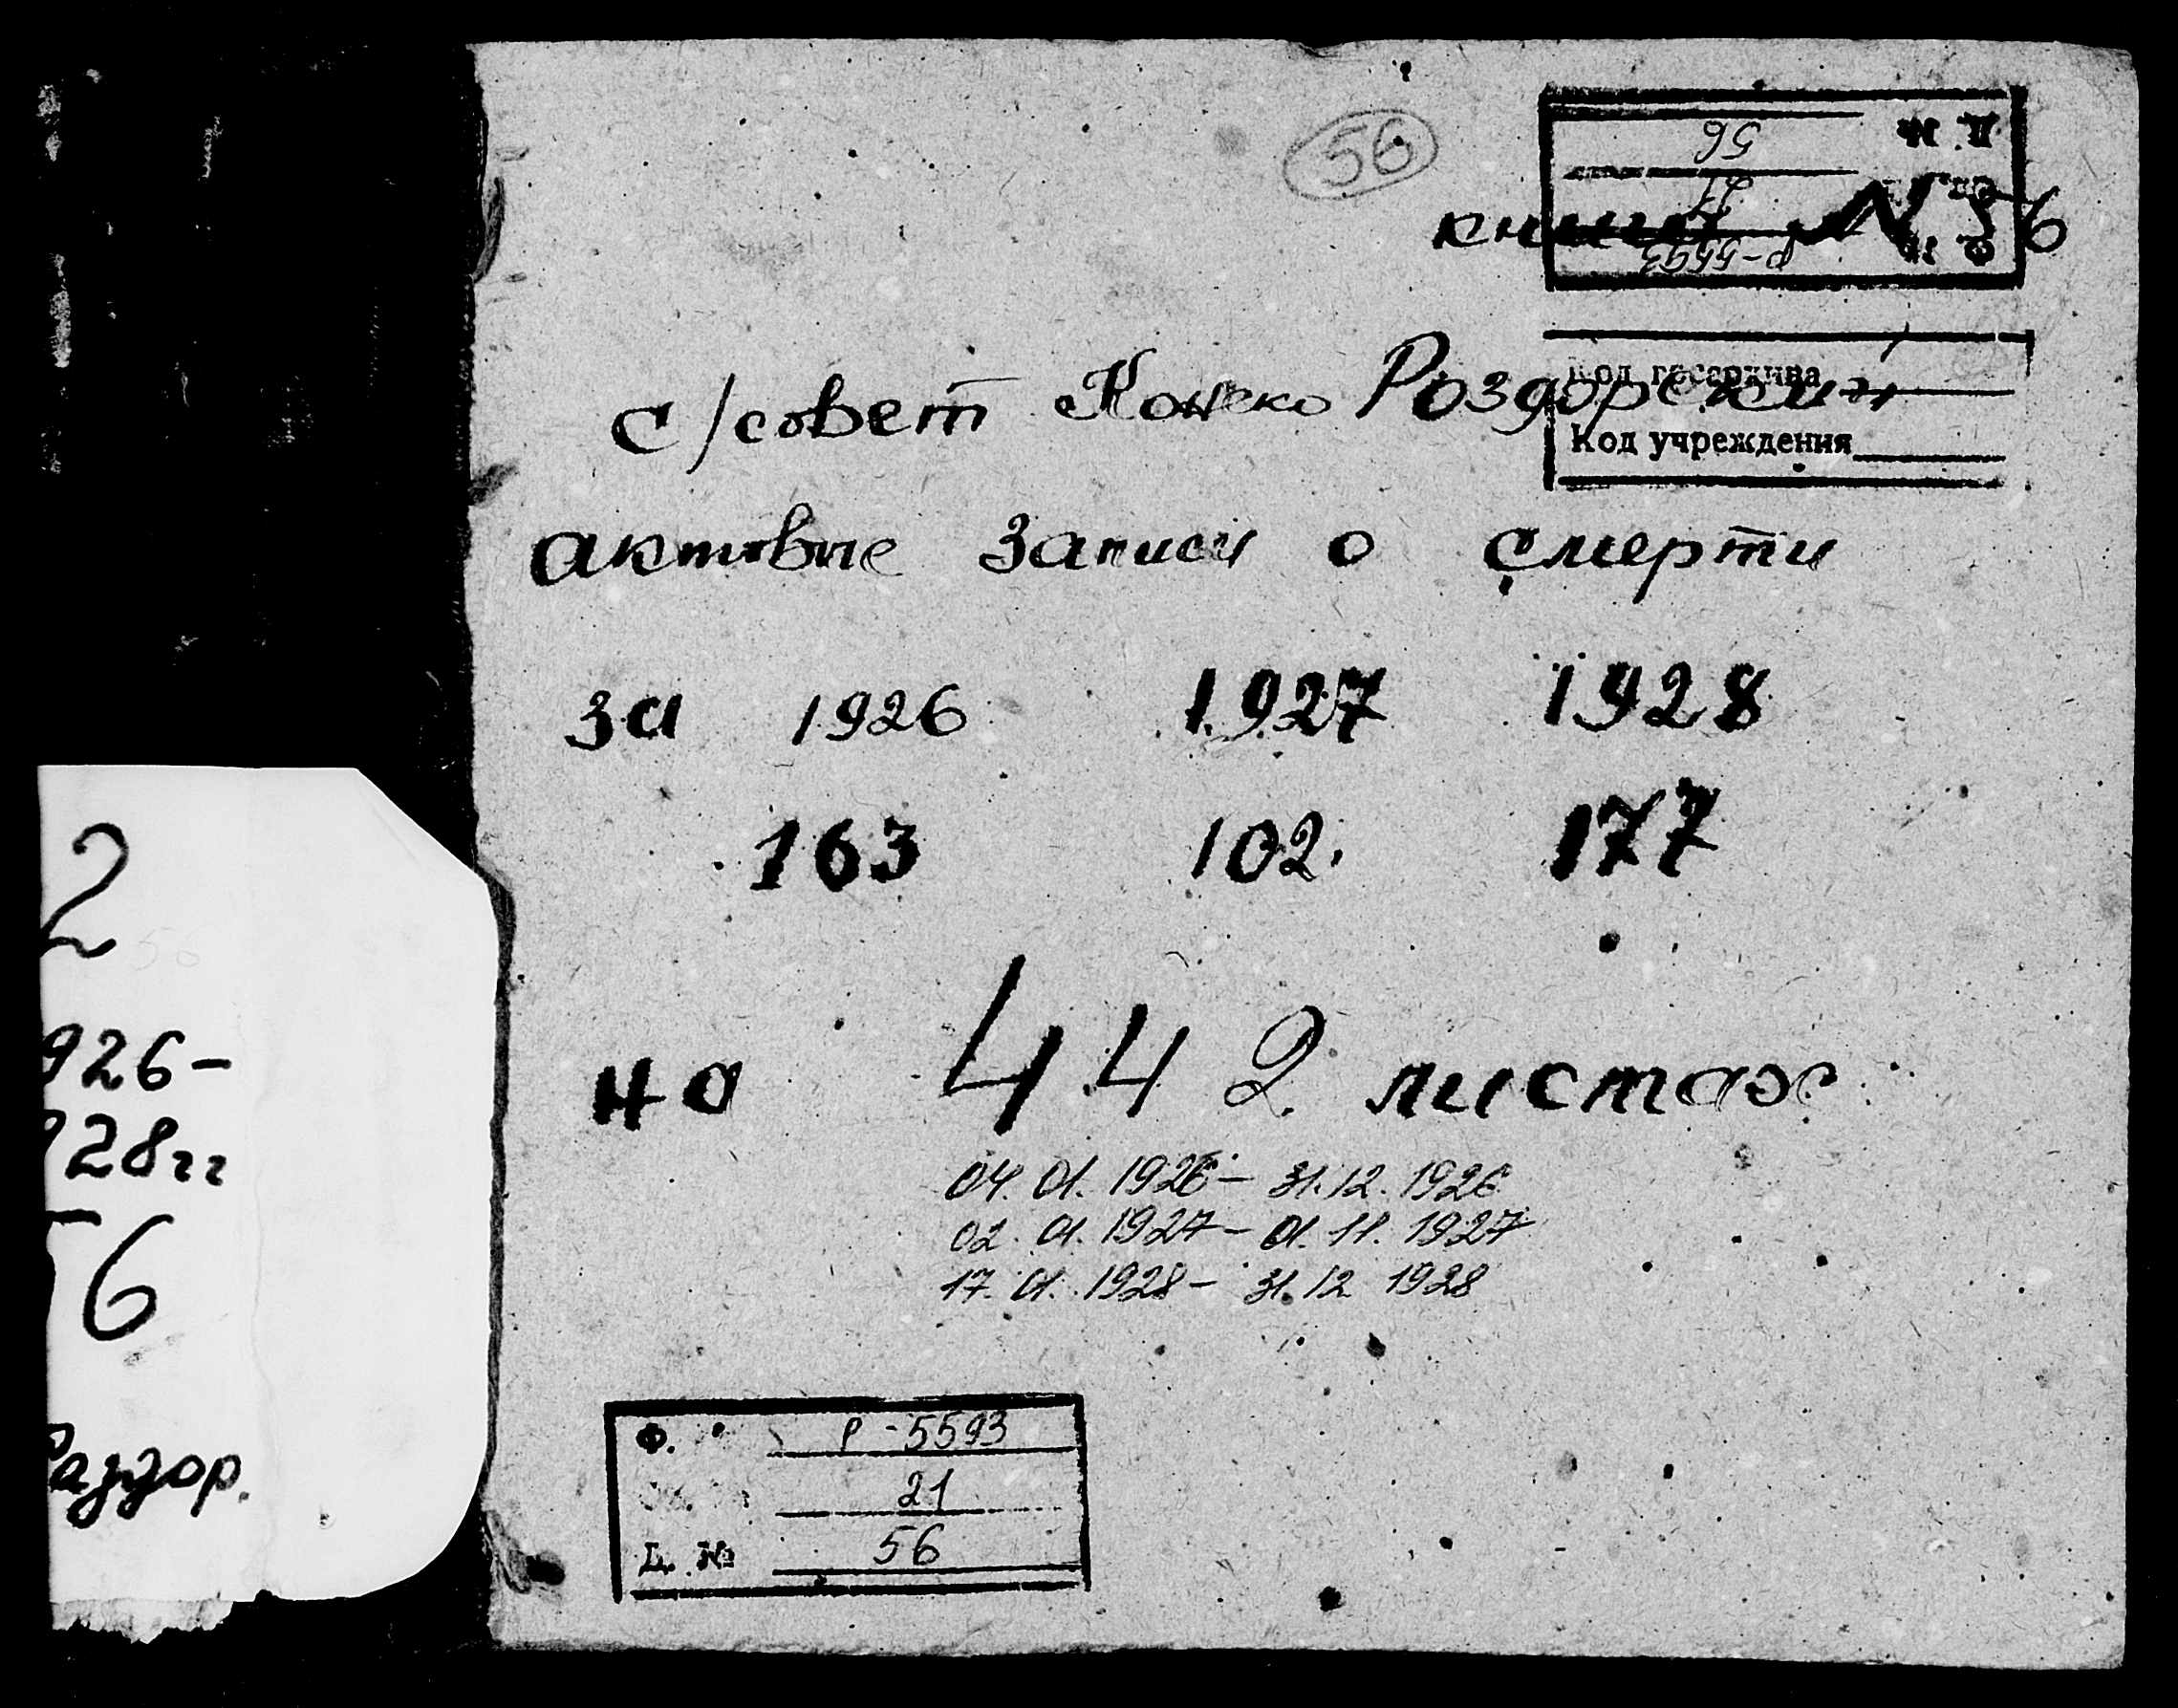 56
Д. №
56
21
Ф. №
Р-5593
книга №56
Код госархива
с/совет Конско Роздорский
Код учреждения
актовые записи о смерти
за 1926 1927 1928
163 102. 177
на 442 листах
04. 01. 1926 - 31. 12. 1926
02. 01. 1927 - 01. 11. 1927
17. 01. 1928 - 31. 12 1928
Ф. Р-5593
21
Д. № 56
2
56
926-
928гг
56
Раздор.